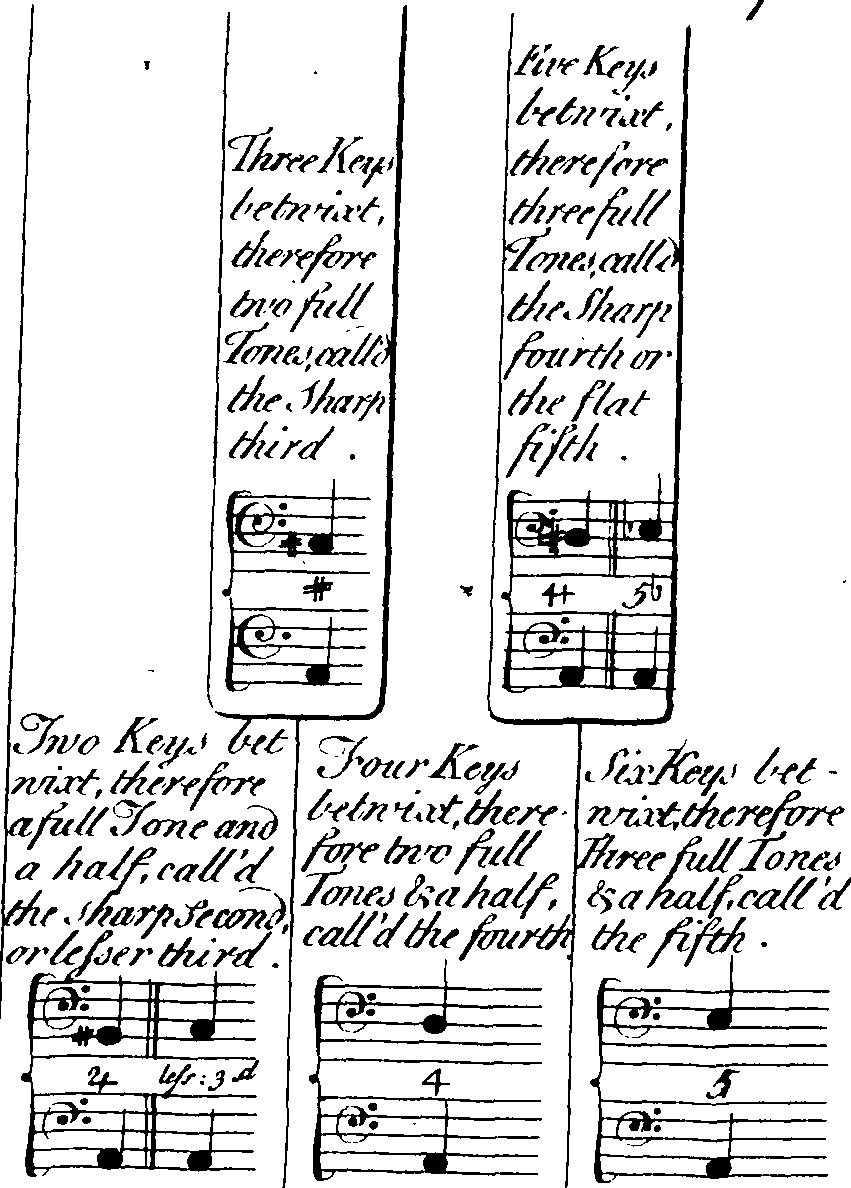 Three Keys
betwixt,
therefore
two full
Tones, call'd
the Sharp
third .
#
Five Keys
betwixt,
therefore
three full
Tones, call'd
the Sharp
fourth or
the flat
fifth .
4+ 5b
Two Keys bet
wixt, therefore
a full Tone and
a half, call'd
the sharp Second,
or leſser third .
2+ leſs: 3d
Four Keys
betwixt, there-
fore two full
Tones & a half,
call'd the fourth
4
Six Keys bet-
wixt, therefore
Three full Tones
& a half, call'd
the fifth .
5